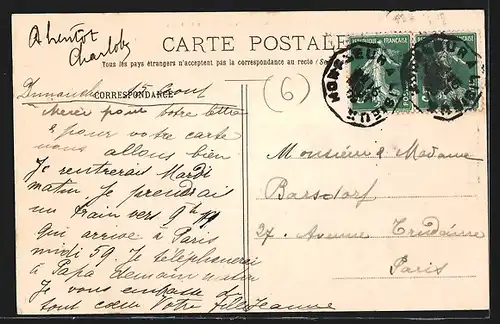 A bientot
Charlotte
CARTE POSTALE
Tous les pays étrangers n'acceptent pas la correspondance au recto
CORRESPONDANCE
Dimanche
(6)
Merci pour votre lettre
& pour votre carte
nous allons bien
Je rentrerai Mardi
matin Je prendrai
un train vers 9h
qui arrive à Paris
midi 59. Je téléphonerai
à Papa demain
Je vous embrasse de
tout cœur Votre fille Jeanne
RÉPUBLIQUE FRANÇAISE
HONFLEUR A LISIEUX
Monsieur & Madame
Barsdorf
27. Avenue Trudaine
Paris